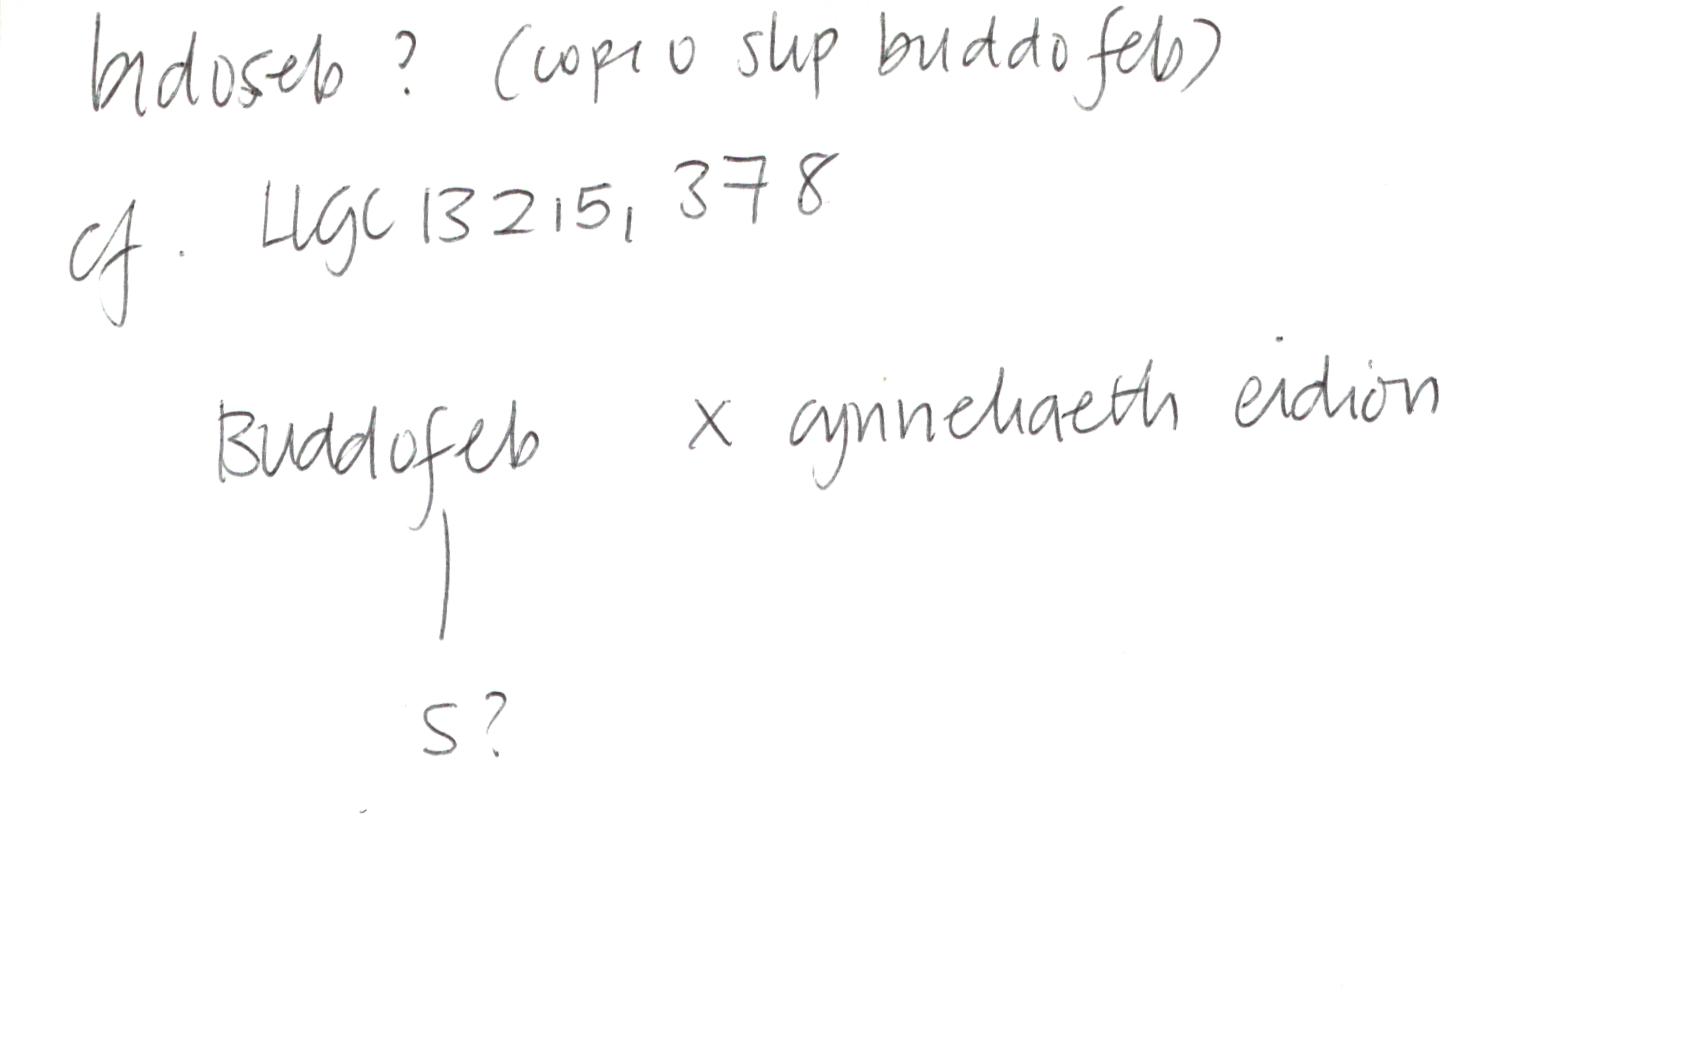 bidoseb? (copi o slip buddofeb)
cf. LlGC 13215, 378
Buddofeb x cynneliaeth eidion
s?